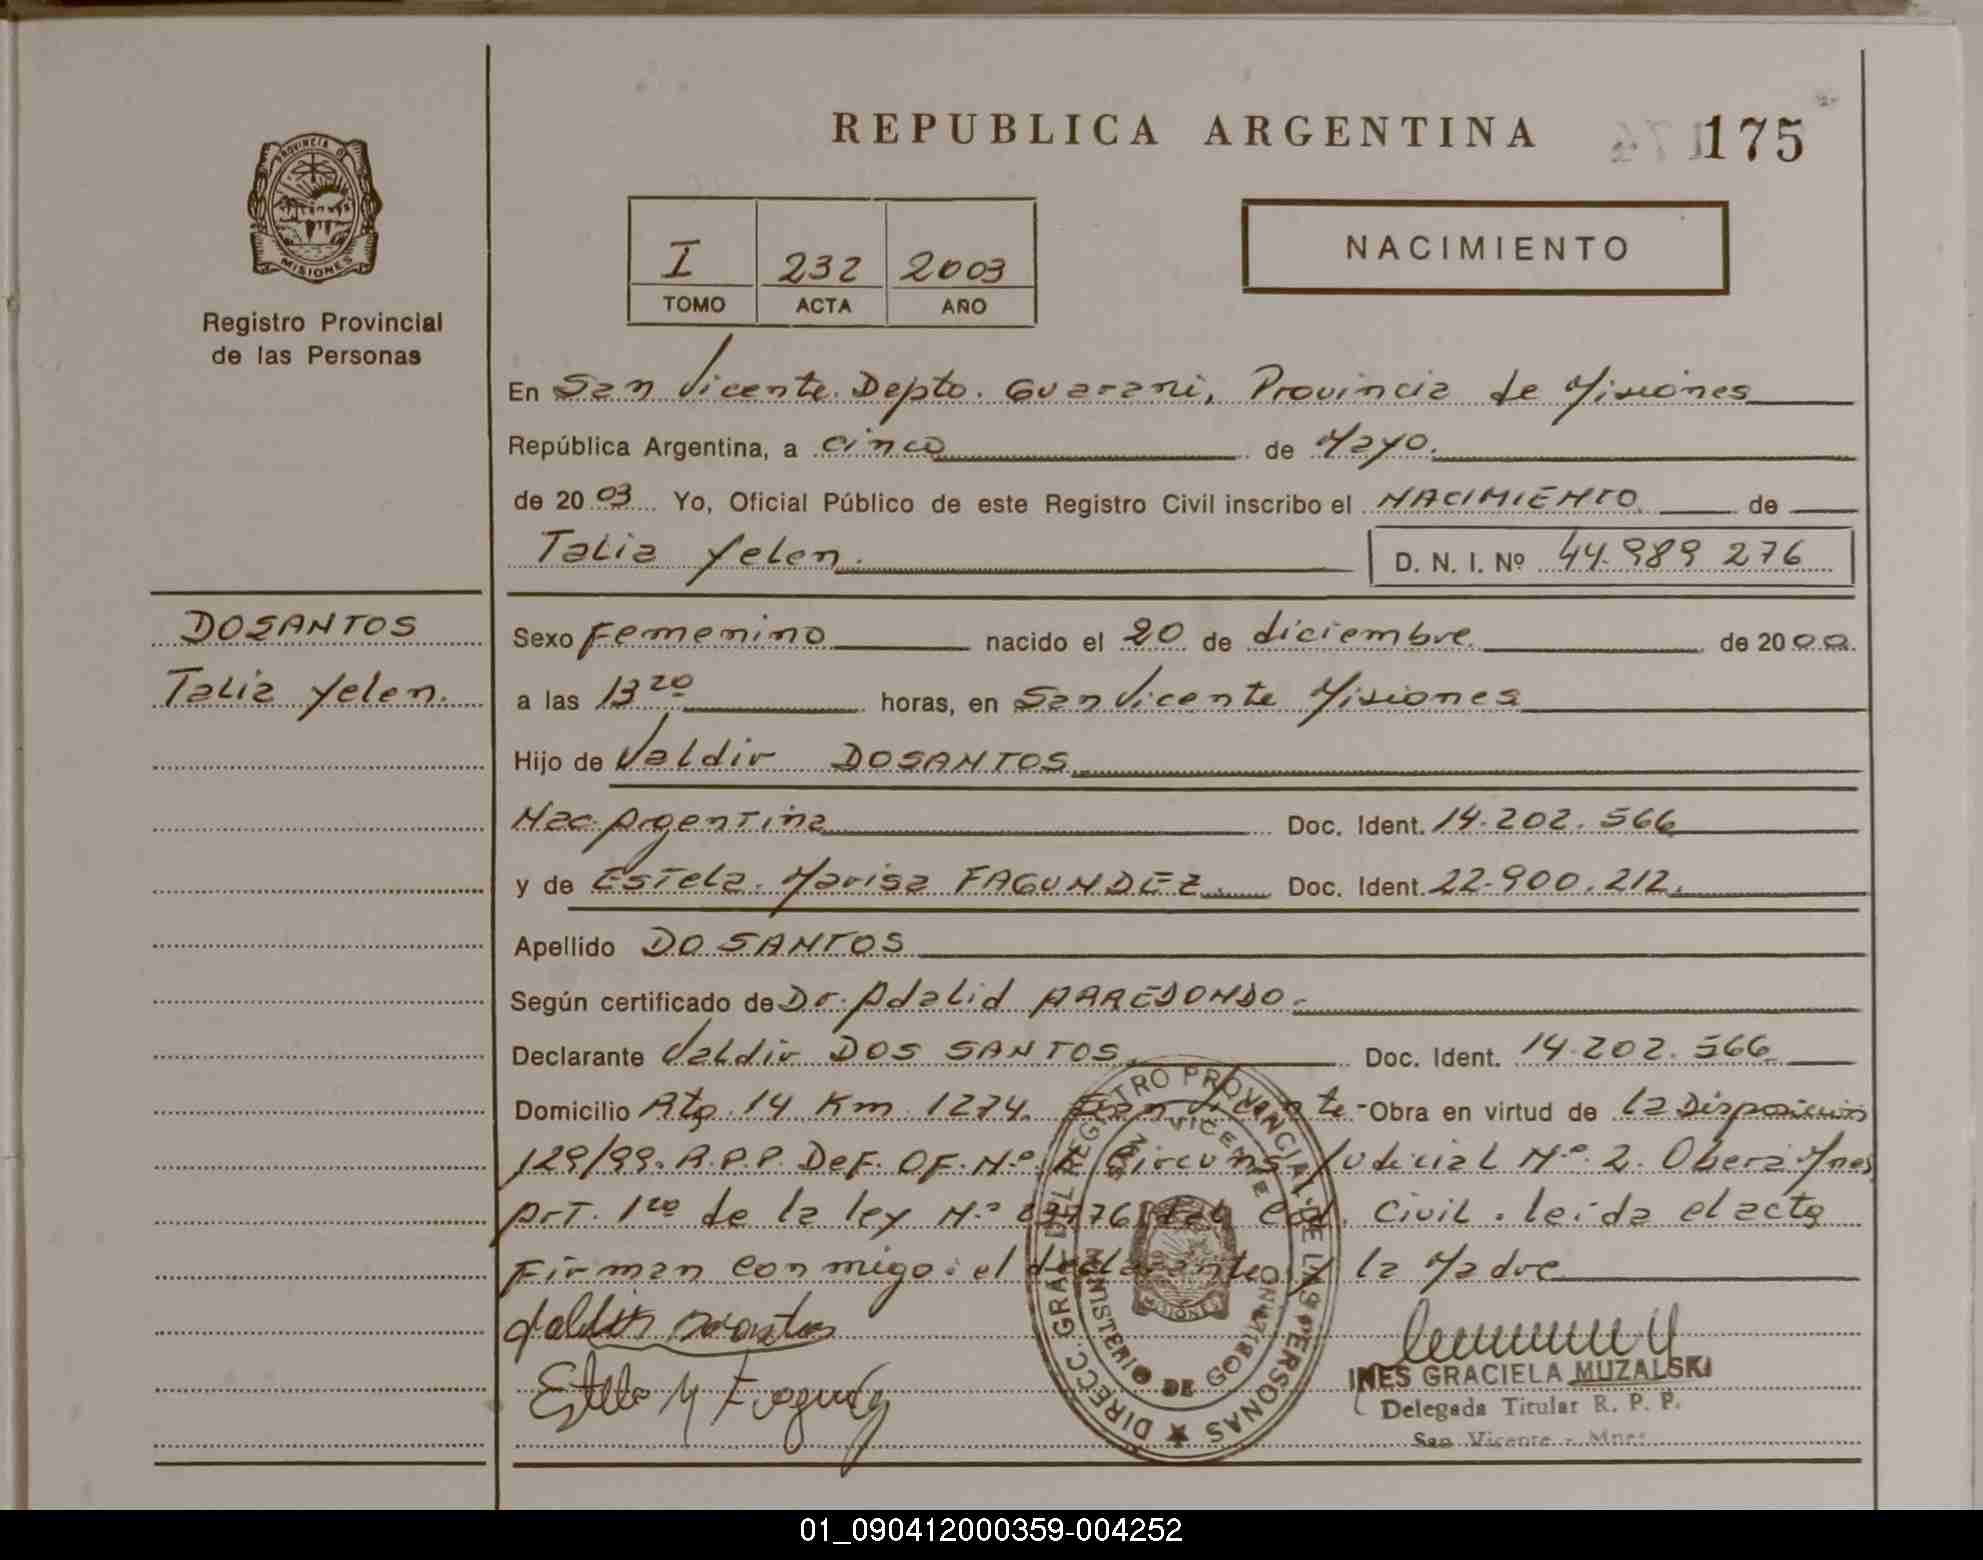 REPUBLICA ARGENTINA 175
PROVINCIA DE MISIONES
Registro Provincial
de las Personas
I 232 2003
TOMO ACTA AÑO
NACIMIENTO
En San Vicente. Depto. Guarani, Provincia de Misiones
República Argentina, a cinco de Mayo.
de 20 03 Yo, Oficial Público de este Registro Civil inscribo el NACIMIENTO de
Talia Yelen. D. N. I. Nº 44.989 276
DOSANTOS
Talia Yelen.
Sexo Femenino nacido el 20 de diciembre. de 2000.
a las 13 20 horas, en San Vicente Misiones
Hijo de Valdir DOSANTOS
Nac. Argentina Doc. Ident. 14.202.566
y de Estela. Marisa FAGUNDEZ. Doc. Ident. 22.900.212.
Apellido DO SANTOS
Según certificado de Dr. Adalid ARREDONDO.
Declarante Valdir DOS SANTOS. Doc. Ident. 14.202.566
Domicilio Rta 14 Km 1274. San Vicente - Obra en virtud de la Disposición
129/99. R.P.P. DEF. OF. Nº Circuns. Judicial Nº 2. Oberá Mnes
Art. 1ro de la ley Nº del Cod. Civil. leida el acta
Firman conmigo: el declarante y la Madre
Estela M Fagundez
DIRECC. GRAL. DEL REGISTRO PROVINCIAL DE LAS PERSONAS
SAN VICENTE
MISIONES
MINISTERIO DE GOBIERNO
INES GRACIELA MUZALSKI
Delegada Titular R. P. P.
San Vicente - Mnes.
01_090412000359-004252